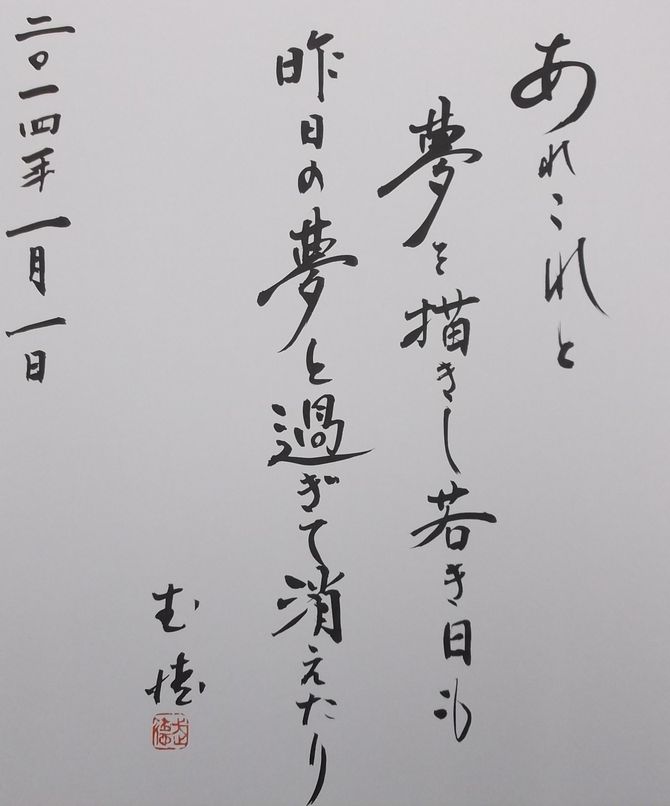 あれこれと
夢を描きし若き日も
昨日の夢と過ぎて消えたり
武徳
二〇一四年一月一日